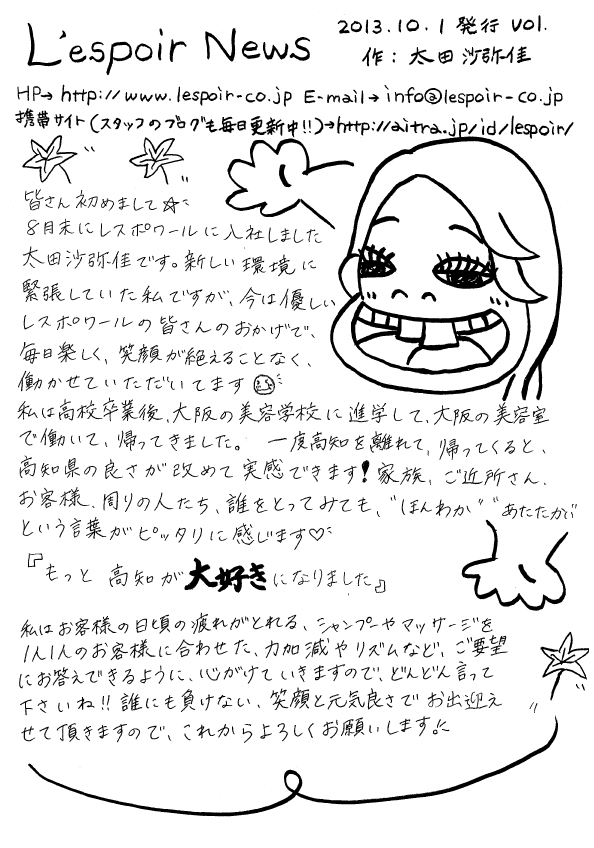 L'espoir News
2013.10.1 発行 vol.
作: 太田沙弥佳
HP→ http://www.lespoir-co.jp E-mail→ info@lespoir-co.jp
携帯サイト(スタッフのブログも毎日更新中!!)→http://aitra.jp/id/lespoir/
皆さん初めまして☆
8月末にレスポワールに入社しました
太田沙弥佳です。新しい環境に
緊張していた私ですが、今は優しい
レスポワールの皆さんのおかげで、
毎日楽しく、笑顔が絶えることなく、
働かせていただいてます
私は高校卒業後、大阪の美容学校に進学して、大阪の美容室
で働いて、帰ってきました。 一度高知を離れて、帰ってくると、
高知県の良さが改めて実感できます!家族、ご近所さん、
お客様、周りの人たち、誰をとってみても、"ほんわか" "あたたかい"
という言葉がピッタリに感じます♡
『もっと 高知が大好きになりました』
私はお客様の日頃の疲れがとれる、シャンプーやマッサージを
1人1人のお客様に合わせた、力加減やリズムなど、ご要望
にお答えできるように、心がけていきますので、どんどん言って
下さいね!!誰にも負けない、笑顔と元気良さでお出迎え
せて頂きますので、これからよろしくお願いします。